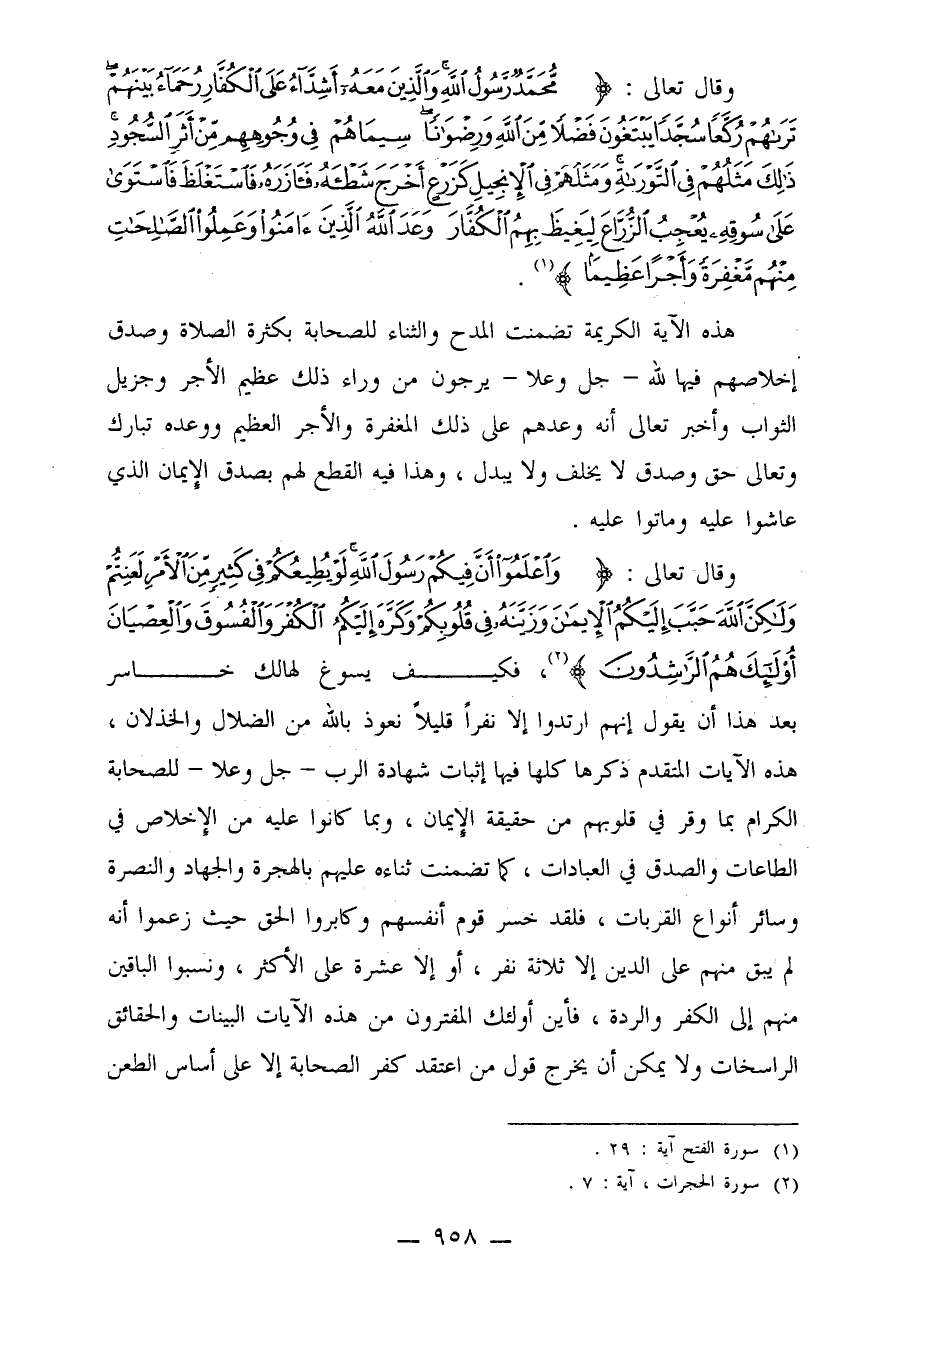 وقال تعالى : ﴿ مُّحَمَّدٌ رَّسُولُ ٱللَّهِ وَٱلَّذِينَ مَعَهُۥٓ أَشِدَّآءُ عَلَى ٱلْكُفَّارِ رُحَمَآءُ بَيْنَهُمْ
تَرَىٰهُمْ رُكَّعًا سُجَّدًا يَبْتَغُونَ فَضْلًا مِّنَ ٱللَّهِ وَرِضْوَٰنًا سِيمَاهُمْ فِى وُجُوهِهِم مِّنْ أَثَرِ ٱلسُّجُودِ
ذَٰلِكَ مَثَلُهُمْ فِى ٱلتَّوْرَىٰةِ وَمَثَلُهُمْ فِى ٱلْإِنجِيلِ كَزَرْعٍ أَخْرَجَ شَطْـَٔهُۥ فَـَٔازَرَهُۥ فَٱسْتَغْلَظَ فَٱسْتَوَىٰ
عَلَىٰ سُوقِهِۦ يُعْجِبُ ٱلزُّرَّاعَ لِيَغِيظَ بِهِمُ ٱلْكُفَّارَ وَعَدَ ٱللَّهُ ٱلَّذِينَ ءَامَنُوا۟ وَعَمِلُوا۟ ٱلصَّٰلِحَٰتِ
مِنْهُم مَّغْفِرَةً وَأَجْرًا عَظِيمًۢا ﴾(١) .
هذه الآية الكريمة تضمنت المدح والثناء للصحابة بكثرة الصلاة وصدق
إخلاصهم فيها لله – جل وعلا – يرجون من وراء ذلك عظيم الأجر وجزيل
الثواب وأخبر تعالى أنه وعدهم على ذلك المغفرة والأجر العظيم ووعده تبارك
وتعالى حق وصدق لا يخلف ولا يبدل ، وهذا فيه القطع لهم بصدق الإيمان الذي
عاشوا عليه وماتوا عليه .
وقال تعالى : ﴿ وَٱعْلَمُوٓا۟ أَنَّ فِيكُمْ رَسُولَ ٱللَّهِ لَوْ يُطِيعُكُمْ فِى كَثِيرٍ مِّنَ ٱلْأَمْرِ لَعَنِتُّمْ
وَلَٰكِنَّ ٱللَّهَ حَبَّبَ إِلَيْكُمُ ٱلْإِيمَٰنَ وَزَيَّنَهُۥ فِى قُلُوبِكُمْ وَكَرَّهَ إِلَيْكُمُ ٱلْكُفْرَ وَٱلْفُسُوقَ وَٱلْعِصْيَانَ
أُو۟لَٰٓئِكَ هُمُ ٱلرَّٰشِدُونَ ﴾(٢)، فكيف يسوغ لهالك خاسر
بعد هذا أن يقول إنهم ارتدوا إلا نفراً قليلاً نعوذ بالله من الضلال والخذلان ،
هذه الآيات المتقدم ذكرها كلها فيها إثبات شهادة الرب – جل وعلا – للصحابة
الكرام بما وقر في قلوبهم من حقيقة الإيمان ، وبما كانوا عليه من الإخلاص في
الطاعات والصدق في العبادات ، كما تضمنت ثناءه عليهم بالهجرة والجهاد والنصرة
وسائر أنواع القربات ، فلقد خسر قوم أنفسهم وكابروا الحق حيث زعموا أنه
لم يبق منهم على الدين إلا ثلاثة نفر ، أو إلا عشرة على الأكثر ، ونسبوا الباقين
منهم إلى الكفر والردة ، فأين أولئك المفترون من هذه الآيات البينات والحقائق
الراسخات ولا يمكن أن يخرج قول من اعتقد كفر الصحابة إلا على أساس الطعن
(١) سورة الفتح آية : ٢٩ .
(٢) سورة الحجرات ، آية : ٧ .
— ٩٥٨ —